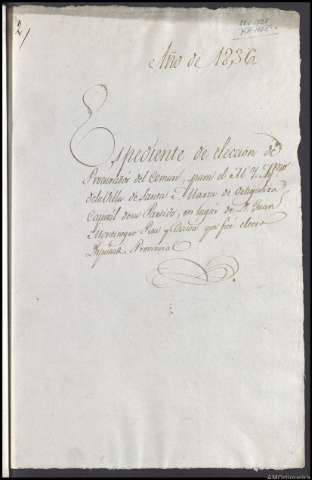 2
Año de 1836
Espediente de eleccion de
Procurador del Comun, para el M. Y. Ayto
de la Villa de Santa Marta de Ortigueira
Capital de su Partido, en lugar de D. Juan
Montenegro Pau y que fué electo
Diputado Provincial